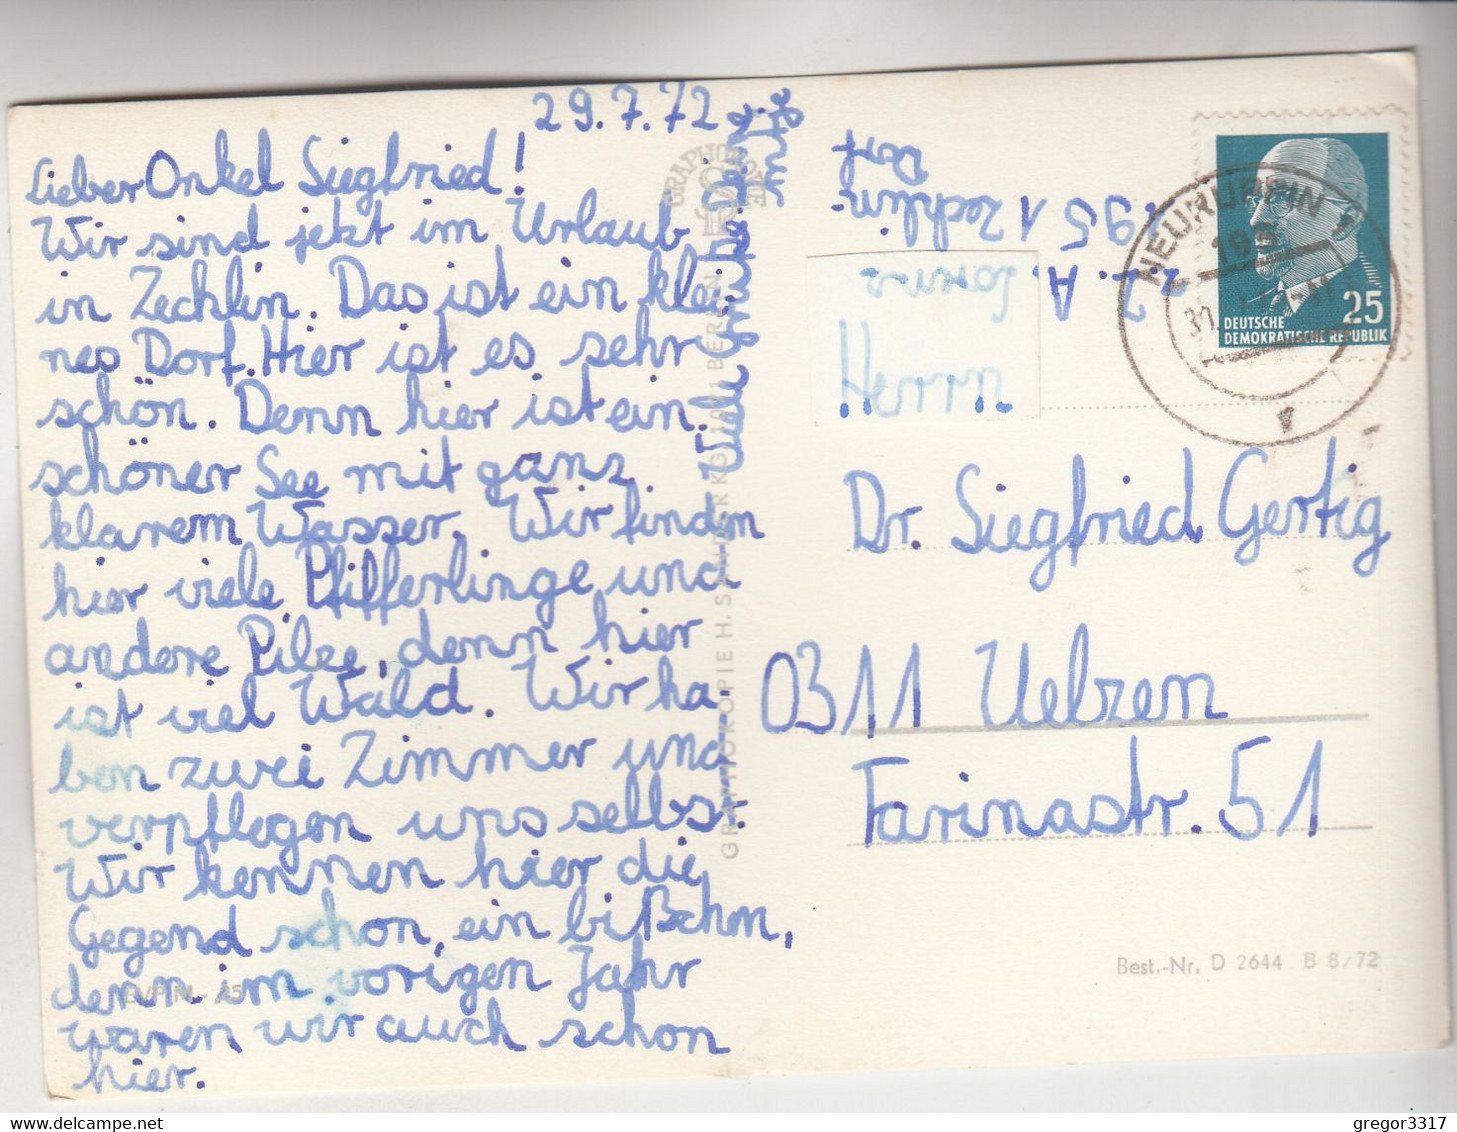 29.7.72
Lieber Onkel Siegfried!
Wir sind jetzt im Urlaub
in Zechlin. Das ist ein klei-
nes Dorf. Hier ist es sehr
schön. Denn hier ist ein
schöner See mit ganz
klarem Wasser. Wir finden
hier viele Pfifferlinge und
andere Pilze, denn hier
ist viel Wald. Wir ha-
ben zwei Zimmer und
verpflegen uns selbst.
Wir kennen hier die
Gegend schon, ein bißchen,
denn im vorigen Jahr
waren wir auch schon
hier.
Viele Grüße
GRAPHOKOPIE H. SANDER KG BERLIN
z. A.
1951 Zechlin-
Dorf
Herrn
Dr. Siegfried Gertig
0311 Uelzen
Farinastr. 51
NEURUPPIN
DEUTSCHE
DEMOKRATISCHE REPUBLIK
25
Best.-Nr. D 2644 B 8/72
gregor3317